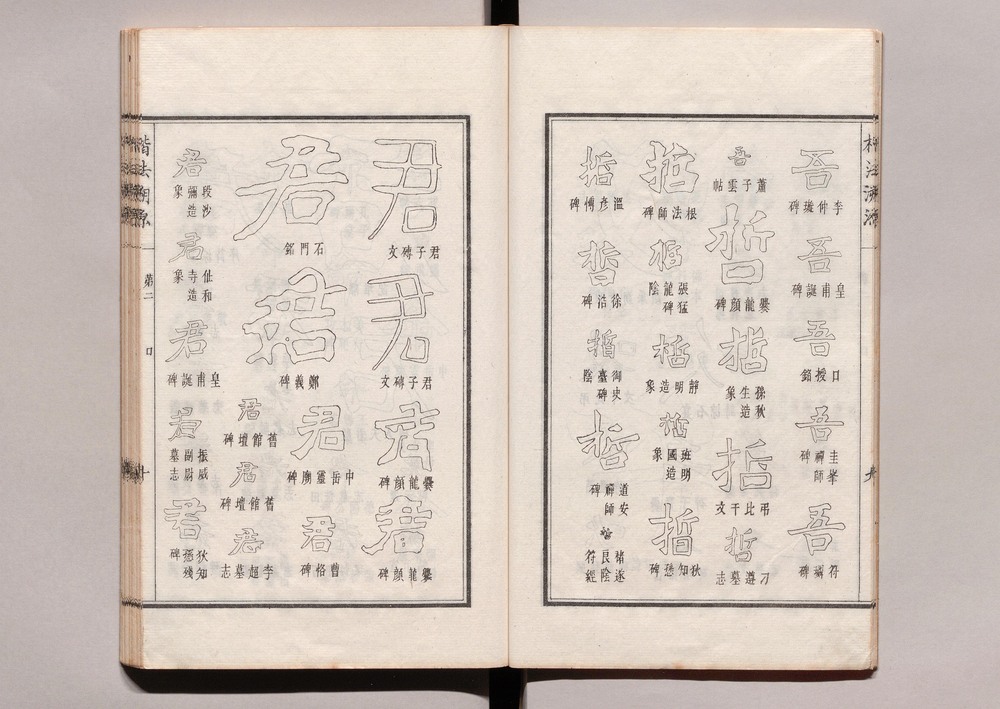 楷法溯源
吾
李仲璇碑
吾
皇甫誕碑
吾
口授銘
吾
圭峯禪師碑
吾
符璘碑
吾
董子雲帖
哲
爨龍顔碑
哲
孫秋生造象
哲
弔比干文
哲
刁遵墓志
哲
根法師碑
哲
張猛龍碑陰
哲
靜明造象
哲
國明造象
哲
狄知愻碑
哲
溫彥博碑
哲
徐浩碑
哲
御史臺碑陰
哲
道安禪師碑
哲
褚遂良陰符經
君
君子磚文
君
君子磚文
君
爨龍顔碑
君
爨龍顔碑
君
石門銘
君
鄭義碑
君
中岳靈廟碑
君
曹恪碑
君
舊館壇碑
君
舊館壇碑
君
李超墓志
君
段沙彌造象
君
和寺造象
君
皇甫誕碑
君
振威副尉墓志
君
狄知愻殘碑
楷法溯源
第二
口
廿